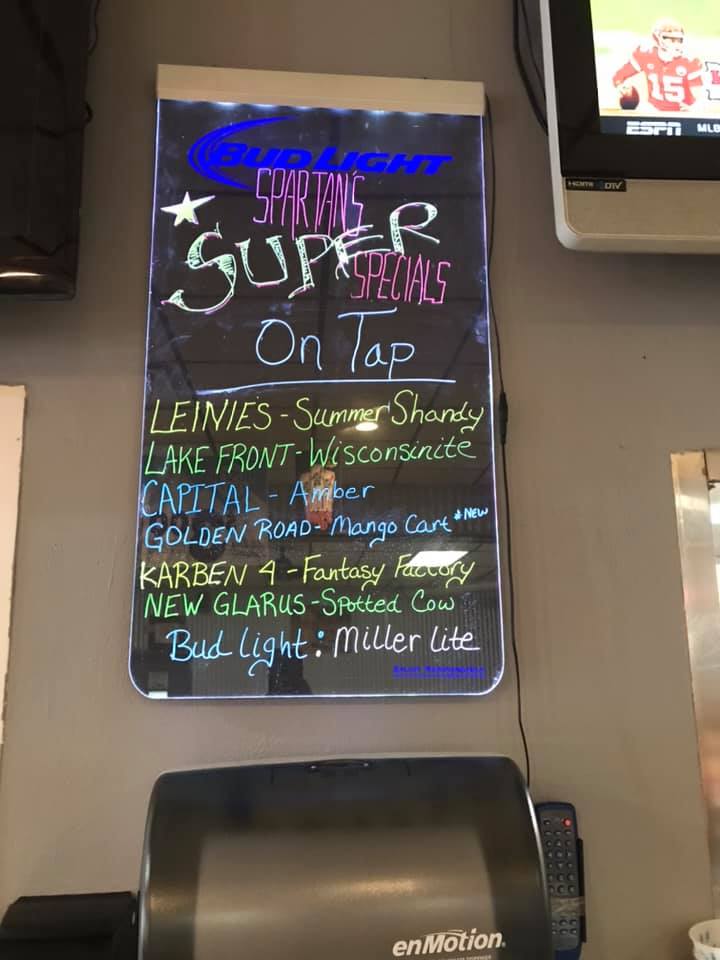 BUD LIGHT
SPARTAN'S
SUPER
SPECIALS
On Tap
LEINIE'S - Summer Shandy
LAKE FRONT - Wisconsinite
CAPITAL - Amber
GOLDEN ROAD - Mango Cart *NEW
KARBEN 4 - Fantasy Factory
NEW GLARUS - Spotted Cow
Bud Light : Miller Lite
enMotion
15
ESPN MLB
HDMI DIV